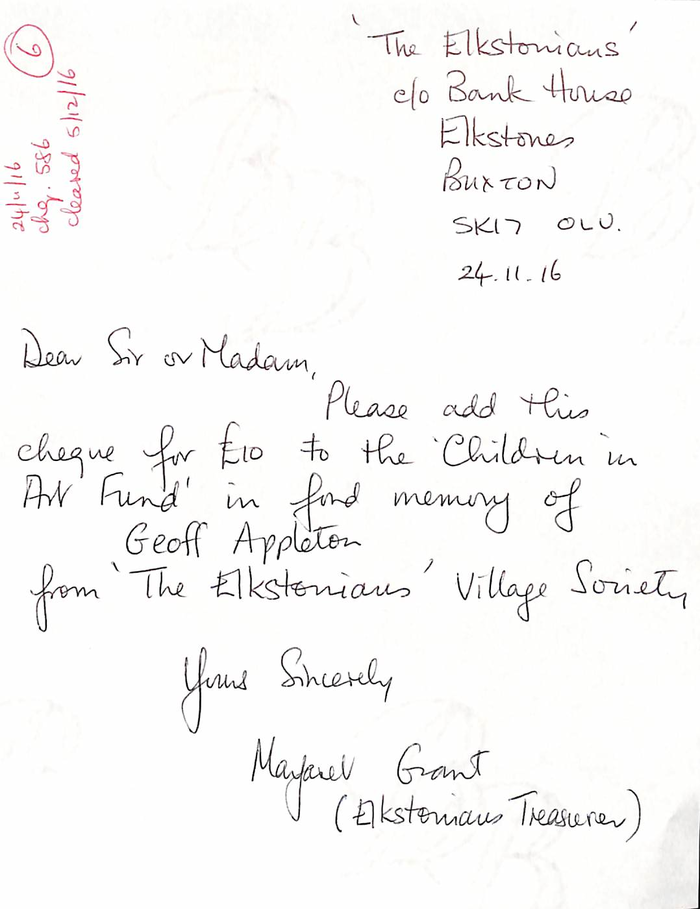 6
24/11/16
chq. 586
cleared 5/12/16
'The Elkstonians'
c/o Bank House
Elkstones
BUXTON
SK17 0LU.
24.11.16
Dear Sir or Madam,
Please add this
cheque for £10 to the 'Children in
Art Fund' in fond memory of
Geoff Appleton
from 'The Elkstonians' Village Society
Yours Sincerely
Margaret Grant
(Elkstonians Treasurer)